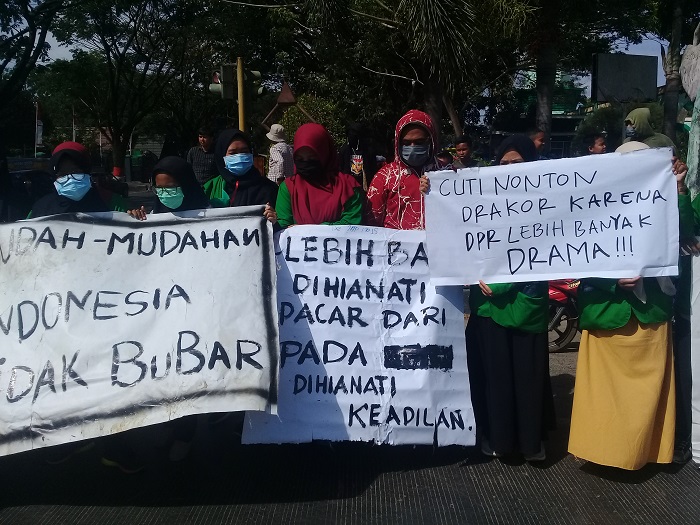 MUDAH-MUDAHAN
INDONESIA
TIDAK BUBAR
LEBIH BA
DIHIANATI
PACAR DARI
PADA
DIHIANATI
KEADILAN.
CUTI NONTON
DRAKOR KARENA
DPR LEBIH BANYAK
DRAMA!!!